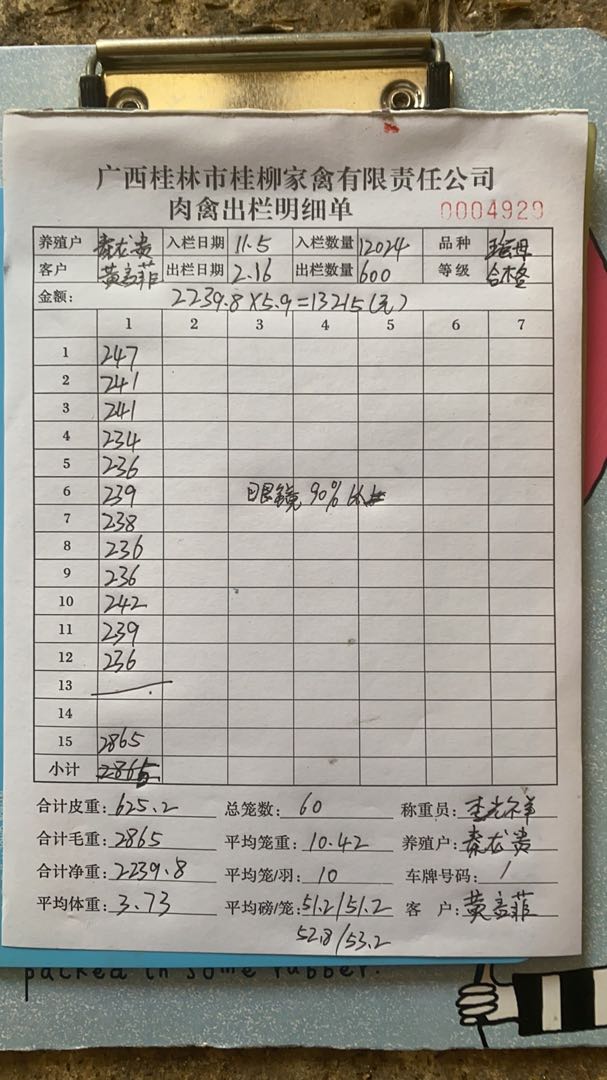 广西桂林市桂柳家禽有限责任公司
肉禽出栏明细单 0004929
养殖户 秦龙贵 入栏日期 11.5 入栏数量 12024 品种
客户 黄 菲 出栏日期 2.16 出栏数量 600 等级 合格
金额: 2239.8×5.9=13215(元)
1 2 3 4 5 6 7
1 247
2 241
3 241
4 234
5 236
6 239 眼镜 90%
7 238
8 236
9 236
10 242
11 239
12 236
13
14
15 2865
小计 2865
合计皮重: 625.2 总笼数: 60 称重员:
合计毛重: 2865 平均笼重: 10.42 养殖户: 秦龙贵
合计净重: 2239.8 平均笼/羽: 10 车牌号码: /
平均体重: 3.73 平均磅/笼: 51.2/51.2 客 户: 黄 菲
52.8/53.2
packed in some rubber.